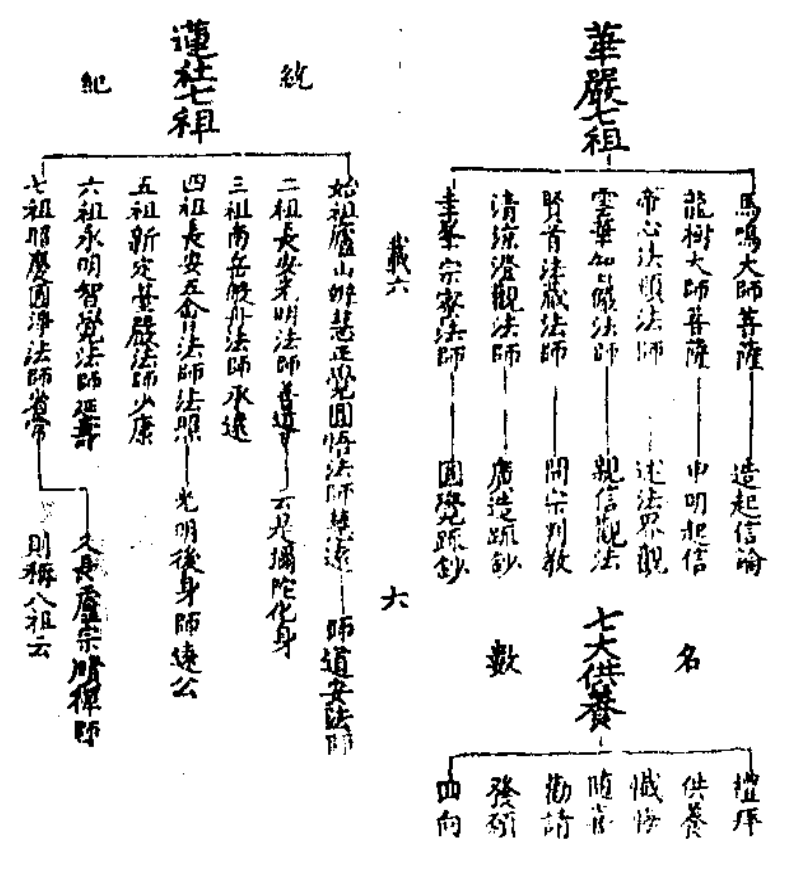 華嚴七祖
馬鳴大師菩薩 造起信論
龍樹大師菩薩 申明起信
帝心法順法師 述法界觀
雲華智儼法師 親信觀法
賢首法藏法師 開宗判教
清涼澄觀法師 廣造疏鈔
圭峯宗密法師 圓覺疏鈔
名 七大供養 數
禮拜
供養
懺悔
隨喜
勸請
發願
回向
藏六 六
統 蓮社七祖 紀
始祖廬山辨慧正覺圓悟法師慧遠 師道安法師
二祖長安光明法師善導 云是彌陀化身
三祖南岳般舟法師承遠
四祖長安五會法師法照 光明後身師遠公
五祖新定臺嚴法師少康
六祖永明智覺法師延壽
七祖昭慶圓淨法師省常
久長蘆宗賾禪師
則稱八祖云